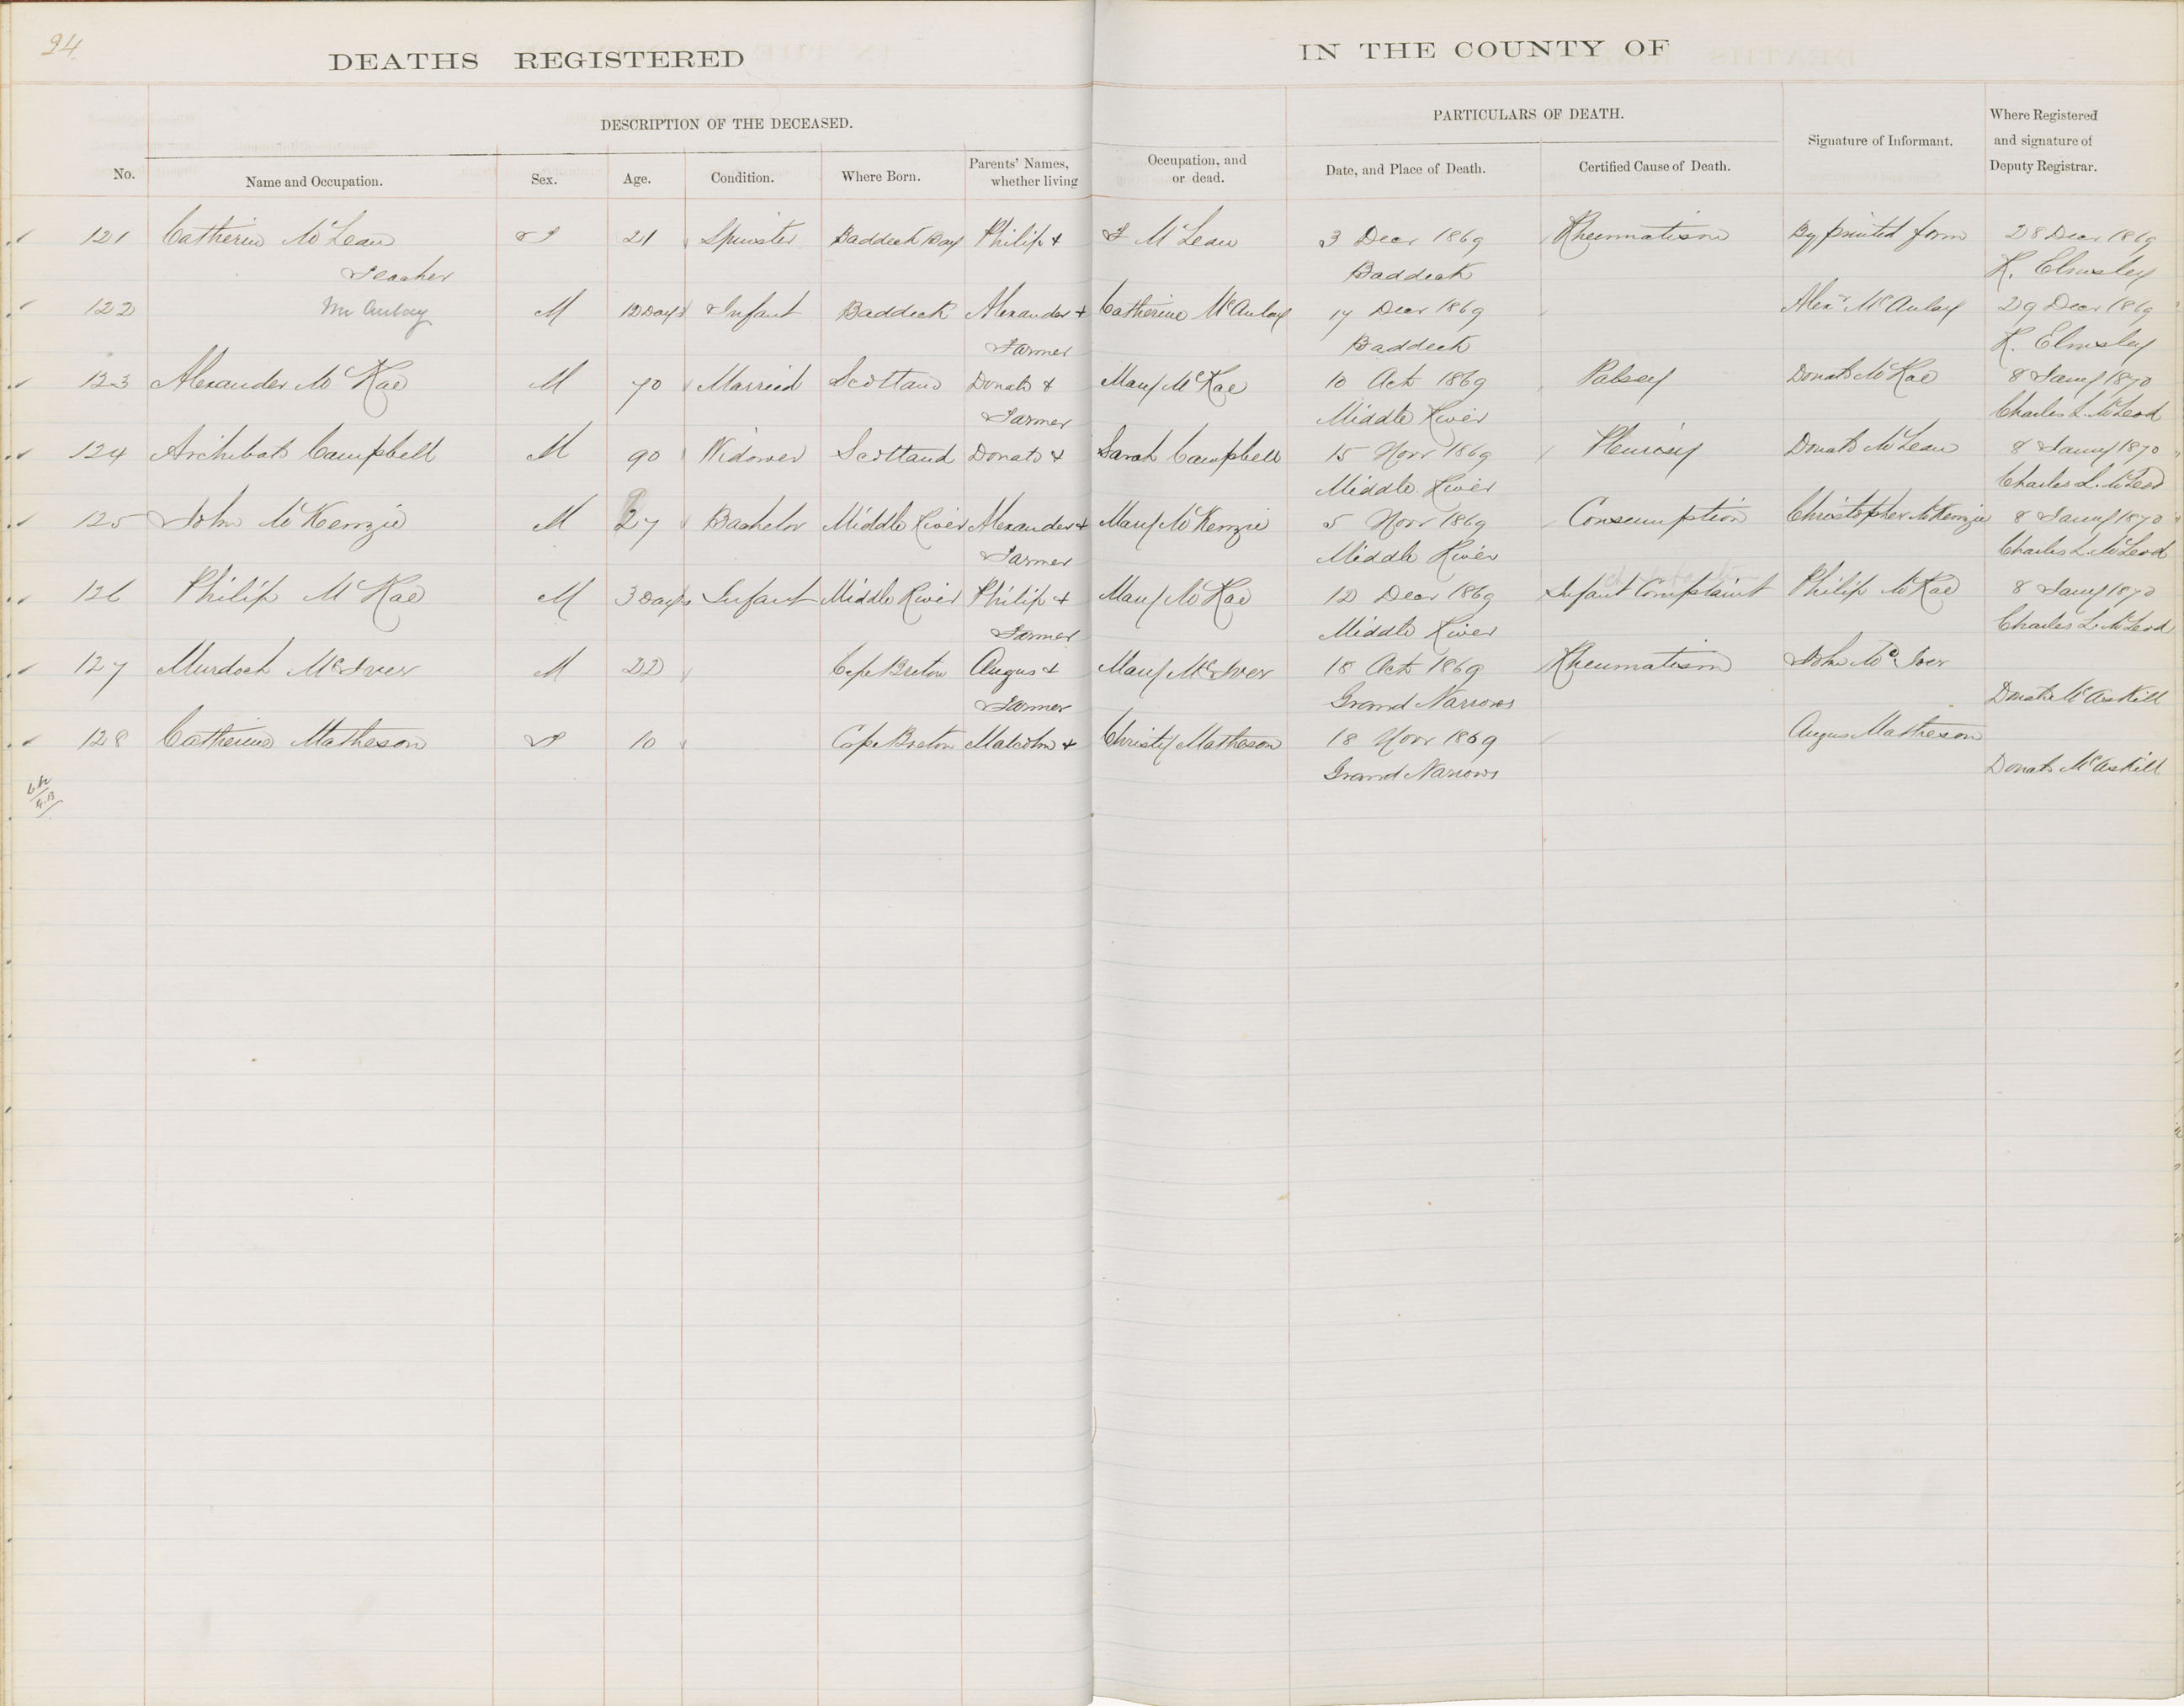 94
DEATHS REGISTERED IN THE COUNTY OF
DESCRIPTION OF THE DECEASED. PARTICULARS OF DEATH.
No. Name and Occupation. Sex. Age. Condition. Where Born. Parents' Names, whether living Occupation, and or dead. Date, and Place of Death. Certified Cause of Death. Signature of Informant. Where Registered and signature of Deputy Registrar.
121 Catherine McLean F 21 Spinster Baddeck Bay Philip & F McLean 3 Decr 1869 Rheumatism By printed form 28 Decr 1869
Teacher Baddeck K. Elmsley
122 McAulay M 12 Days Infant Baddeck Alexander & Catherine McAulay 17 Decr 1869 Alexr McAulay 29 Decr 1869
Farmer Baddeck K. Elmsley
123 Alexander McRae M 70 Married Scotland Donald & Mary McRae 10 Oct 1869 Palsey Donald McRae 8 Jany 1870
Farmer Middle River Charles L. McLeod
124 Archibald Campbell M 90 Widower Scotland Donald & Sarah Campbell 15 Novr 1869 Pleurisy Donald McLean 8 Jany 1870
Middle River Charles L. McLeod
125 John McKenzie M 27 Bachelor Middle River Alexander & Mary McKenzie 5 Novr 1869 Consumption Christopher McKenzie 8 Jany 1870
Farmer Middle River Charles L. McLeod
126 Philip McRae M 3 Days Infant Middle River Philip & Mary McRae 12 Decr 1869 Infant Complaint Philip McRae 8 Jany 1870
Farmer Middle River Charles L. McLeod
127 Murdoch McIver M 22 Cape Breton Angus & Mary McIver 18 Oct 1869 Rheumatism John McIver
Farmer Grand Narrows Donald McAskill
128 Catherine Matheson F 10 Cape Breton Malcolm & Christy Matheson 18 Novr 1869 Angus Matheson
Grand Narrows Donald McAskill